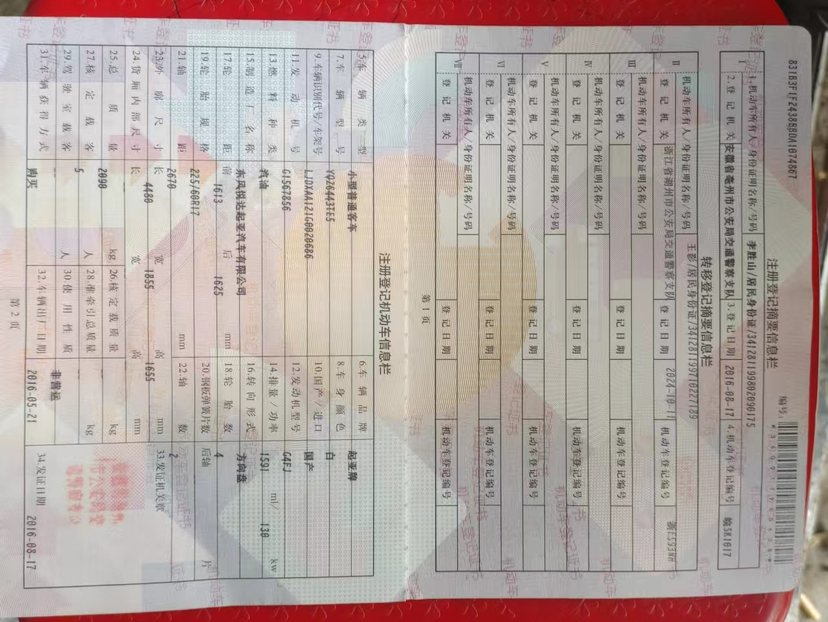 注册登记摘要信息栏
编号:
Ⅰ 1.机动车所有人/身份证明名称/号码 李胜山/居民身份证/341281199802090175
2.登记机关 安徽省亳州市公安局交通警察支队 3.登记日期 2016-08-17 4.机动车登记编号 皖SK1017
转移登记摘要信息栏
Ⅱ 机动车所有人/身份证明名称/号码 王影/居民身份证/341281199710227189
登记机关 浙江省湖州市公安局交通警察支队 登记日期 2024-10-11 机动车登记编号
Ⅲ 机动车所有人/身份证明名称/号码
登记机关 登记日期 机动车登记编号
Ⅳ 机动车所有人/身份证明名称/号码
登记机关 登记日期 机动车登记编号
Ⅴ 机动车所有人/身份证明名称/号码
登记机关 登记日期 机动车登记编号
Ⅵ 机动车所有人/身份证明名称/号码
登记机关 登记日期 机动车登记编号
Ⅶ 机动车所有人/身份证明名称/号码
登记机关 登记日期 机动车登记编号
第1页
注册登记机动车信息栏
5.车辆类型 小型普通客车 6.车辆品牌 起亚牌
7.车辆型号 YQZ6443TE5 8.车身颜色 白
9.车辆识别代号/车架号 LJDXAA121G0020686 10.国产/进口 国产
11.发动机号 G1567856 12.发动机型号 G4FJ
13.燃料种类 汽油 14.排量/功率 1591 ml/ 130 kw
15.制造厂名称 东风悦达起亚汽车有限公司 16.转向形式 方向盘
17.轮距 前 1613 后 1625 mm 18.轮胎数 4
19.轮胎规格 225/60R17 20.钢板弹簧片数 后轴 片
21.轴距 2670 mm 22.轴数 2
23.外廓尺寸 长 4480 宽 1855 高 1655 mm 33.发证机关章
24.货厢内部尺寸 长 宽 高 mm
25.总质量 2090 kg 26.核定载质量 kg
27.核定载客 5 人 28.准牵引总质量 kg
29.驾驶室载客 人 30.使用性质 非营运
31.车辆获得方式 购买 32.车辆出厂日期 2016-05-21 34.发证日期 2016-08-17
第2页